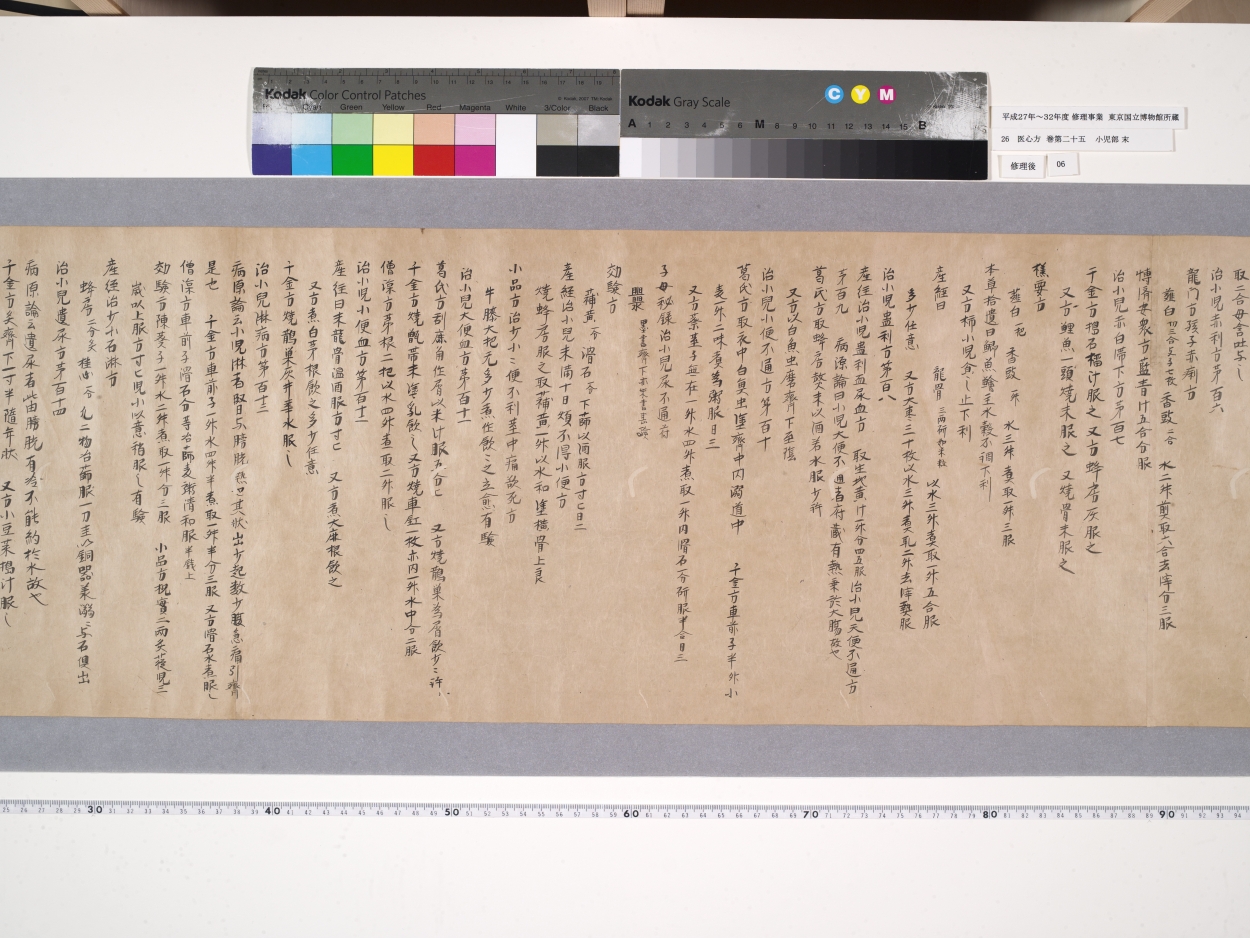 Kodak Color Control Patches
Green Yellow Red Magenta White 3/Color Black
Kodak Gray Scale
C Y M
A 1 2 3 4 5 6 M 8 9 10 11 12 13 14 15 B
平成27年～32年度 修理事業 東京国立博物館所蔵
26 医心方 巻第二十五 小児部 末
修理後 06
取二合母含吐与之
治小児赤利方第百六
龍門方孩子赤痢方
薤白 香豉 二合 水二升煎取六合去滓分三服
博済安衆方藍青汁五合分服
治小児赤白滞下方第百七
千金方搗石榴汁服之 又方蜂房灰服之
又方鯉魚一頭焼末服之 又焼骨末服之
薤白一把 香豉 水三升 煮取一升三服
本草拾遺曰鯽魚鱠主水穀不調下利
又方柿小児食之止下利
産経曰 龍骨 以水三升煮取一升五合服
多少任意 又方大棗三十枚以水三升煮取二升去滓頓服
治小児蠱利方第百八
産経治小児蠱利血尿血方 取生地黄汁一升分四五服 治小児大便不通方
第百九 病源論曰小児大便不通者府蔵有熱乗於大腸故也
葛氏方取蜂房熬末以酒若水服少許
又方以白魚虫磨齊下至陰
治小児小便不通方第百十
葛氏方取衣中白魚虫塗齊中内溺道中 千金方車前子半升小
麦一升二味煮為粥服日三
又方葵子無在一升水四升煮取一升内滑石一分研服半合日三
子母秘録治小児尿不通方
効験方
蒲黄 滑石 下篩以酒服方寸匕日二
産経治小児未満十日煩不得小便方
焼蜂房服之取蒲黄一升以水和塗横骨上良
小品方治少小小便不利茎中痛欲死方
牛膝大把无多少煮任飲之立愈有験
治小児大便血方第百十一
葛氏方刮鹿角作屑以米汁服五分匕 又方焼鵲巣為屑飲少々許
千金方焼甑帯末塗乳飲之又方焼車釭一枚赤内一升水中分二服
僧深方茅根二把以水四升煮取二升服之
治小児小便血方第百十二
産経曰末龍骨温酒服方寸匕 又方煮大麻根飲之
又方煮白茅根飲之多少任意
千金方焼鵲巣灰井華水服之
治小児淋病方第百十三
病源論云小児淋者腎与膀胱熱也其状出少起数少腹急痛引齊
是也 千金方車前子一升水四升半煮取一升半分三服 又方滑石水煮服之
僧深方車前子滑石分等冶篩麦粥清和服半銭上
効験方陳葵子一升水二升煮取一升分三服 小品方枳実二両炙蓰児三
歳以上服方寸匕児小以意稍服之有験
産経治少小石淋方
治小児遺尿方第百十四
病源論云遺尿者此由膀胱有冷不能約於水故也
千金方灸齊下一寸半随年状 又方小豆葉搗汁服之